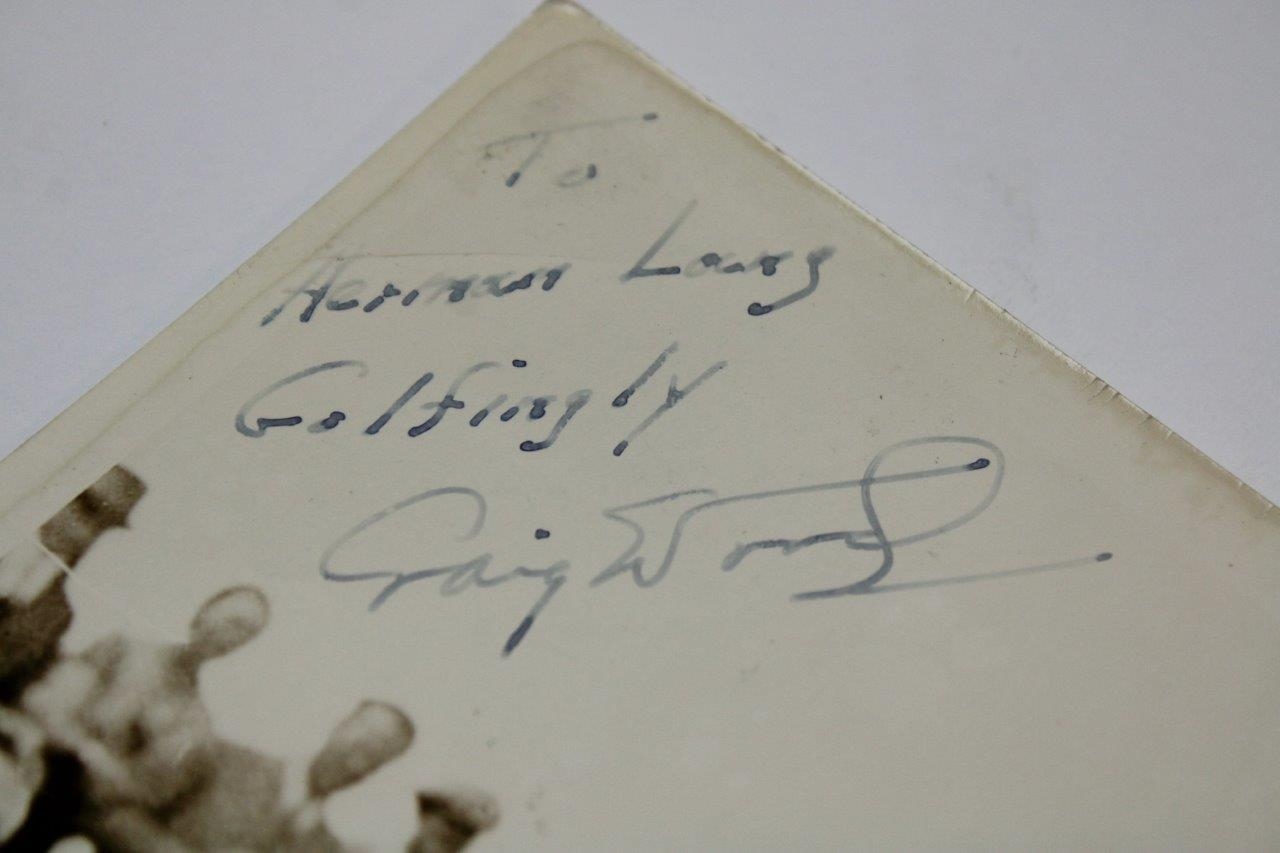 To
Herman Lang
Golfingly
Craig Wood